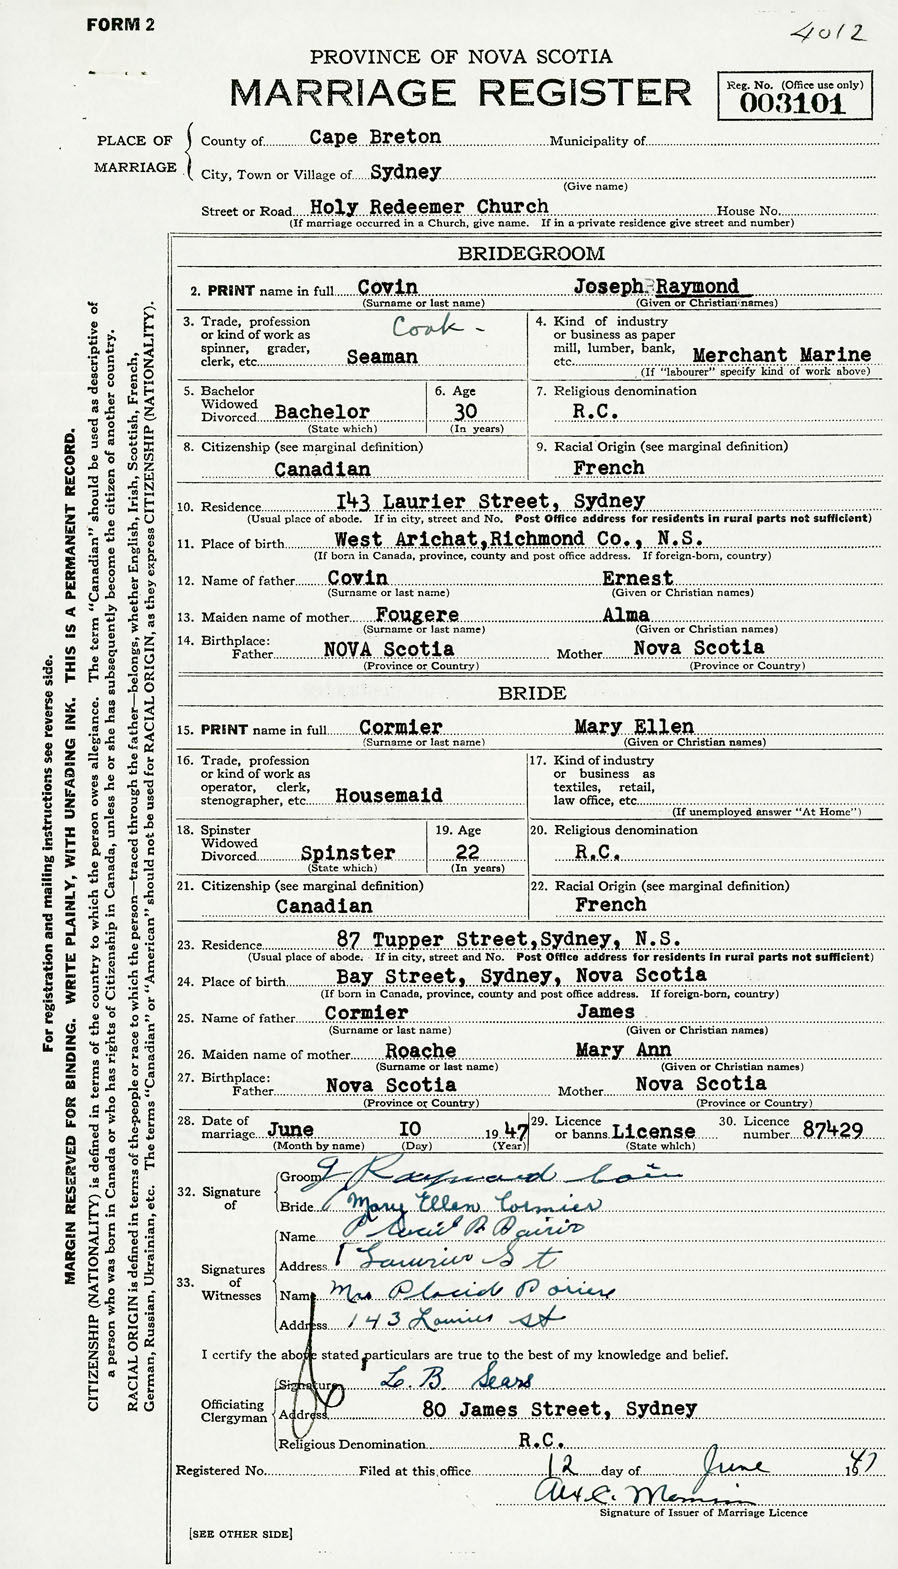 FORM 2
4012
PROVINCE OF NOVA SCOTIA
MARRIAGE REGISTER
Reg. No. (Office use only)
003101
PLACE OF MARRIAGE
County of Cape Breton Municipality of
City, Town or Village of Sydney
(Give name)
Street or Road Holy Redeemer Church House No.
(If marriage occurred in a Church, give name. If in a private residence give street and number)
BRIDEGROOM
2. PRINT name in full Covin Joseph Raymond
(Surname or last name) (Given or Christian names)
3. Trade, profession or kind of work as spinner, grader, clerk, etc. Cook - Seaman
4. Kind of industry or business as paper mill, lumber, bank, etc. Merchant Marine
(If "labourer" specify kind of work above)
5. Bachelor Widowed Divorced Bachelor
(State which)
6. Age 30
(In years)
7. Religious denomination
R.C.
8. Citizenship (see marginal definition)
Canadian
9. Racial Origin (see marginal definition)
French
10. Residence I43 Laurier Street, Sydney
(Usual place of abode. If in city, street and No. Post Office address for residents in rural parts not sufficient)
11. Place of birth West Arichat,Richmond Co., N.S.
(If born in Canada, province, county and post office address. If foreign-born, country)
12. Name of father Covin Ernest
(Surname or last name) (Given or Christian names)
13. Maiden name of mother Fougere Alma
(Surname or last name) (Given or Christian names)
14. Birthplace: Father NOVA Scotia Mother Nova Scotia
(Province or Country) (Province or Country)
BRIDE
15. PRINT name in full Cormier Mary Ellen
(Surname or last name) (Given or Christian names)
16. Trade, profession or kind of work as operator, clerk, stenographer, etc. Housemaid
17. Kind of industry or business as textiles, retail, law office, etc.
(If unemployed answer "At Home")
18. Spinster Widowed Divorced Spinster
(State which)
19. Age 22
(In years)
20. Religious denomination
R.C.
21. Citizenship (see marginal definition)
Canadian
22. Racial Origin (see marginal definition)
French
23. Residence 87 Tupper Street,Sydney, N.S.
(Usual place of abode. If in city, street and No. Post Office address for residents in rural parts not sufficient)
24. Place of birth Bay Street, Sydney, Nova Scotia
(If born in Canada, province, county and post office address. If foreign-born, country)
25. Name of father Cormier James
(Surname or last name) (Given or Christian names)
26. Maiden name of mother Roache Mary Ann
(Surname or last name) (Given or Christian names)
27. Birthplace: Father Nova Scotia Mother Nova Scotia
(Province or Country) (Province or Country)
28. Date of marriage June IO 1947
(Month by name) (Day) (Year)
29. Licence or banns License
(State which)
30. Licence number 87429
32. Signature of
Groom J Raymond
Bride Mary Ellen Cormier
33. Signatures of Witnesses
Name
Address Laurier St
Name Mrs Placid Poirier
Address 143 Laurier St
I certify the above stated particulars are true to the best of my knowledge and belief.
Officiating Clergyman
Signature L. B. Sears
Address 80 James Street, Sydney
Religious Denomination R.C.
Registered No. Filed at this office 12 day of June 1947
Signature of Issuer of Marriage Licence
[SEE OTHER SIDE]
For registration and mailing instructions see reverse side.
MARGIN RESERVED FOR BINDING. WRITE PLAINLY, WITH UNFADING INK. THIS IS A PERMANENT RECORD.
CITIZENSHIP (NATIONALITY) is defined in terms of the country to which the person owes allegiance. The term "Canadian" should be used as descriptive of
a person who was born in Canada or who has rights of Citizenship in Canada, unless he or she has subsequently become the citizen of another country.
RACIAL ORIGIN is defined in terms of the people or race to which the person—traced through the father—belongs, whether English, Irish, Scottish, French,
German, Russian, Ukrainian, etc. The terms "Canadian" or "American" should not be used for RACIAL ORIGIN, as they express CITIZENSHIP (NATIONALITY).